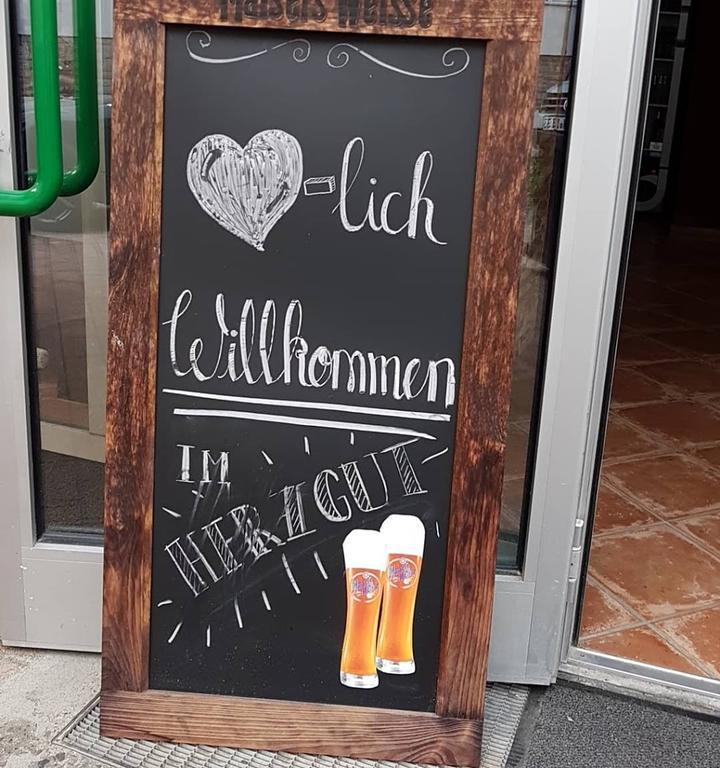 Maisels Weisse
-lich
Willkommen
IM
HERZGUT